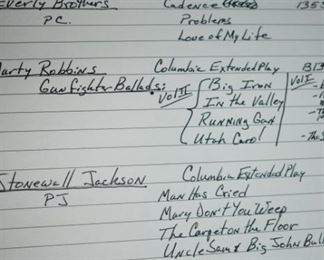 Everly Brothers Cadence 135
P.C. Problems
Love of My Life
Marty Robbins Columbia Extended Play B13
Gunfighter Ballads: Vol II Big Iron Vol I
In the Valley
Running Gun
Utah Carol
Stonewall Jackson Columbia Extended Play
PJ Man Has Cried
Mary Don't You Weep
The Carpet on the Floor
Uncle Sam & Big John Bull